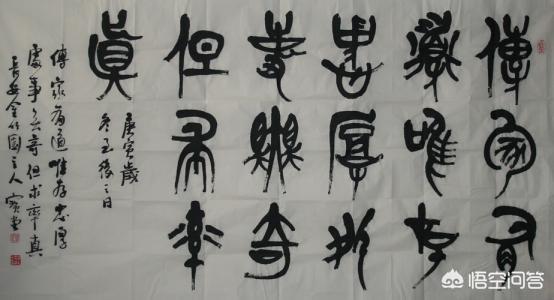 傳家有
道唯存
忠厚處
事無奇
但求率
真
庚寅歲
冬至後日
傳家有道唯存忠厚
處事無奇但求率真
長安金竹園主人
悟空问答